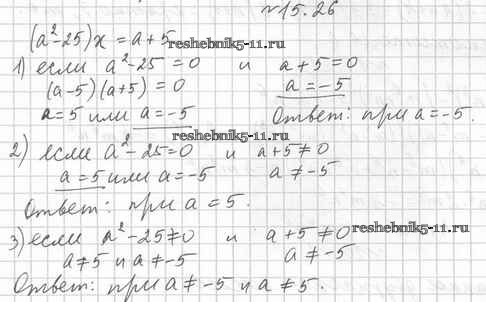 №15.26
(a²-25)x = a+5
reshebnik5-11.ru
1) если a²-25=0 и a+5=0
(a-5)(a+5)=0 a=-5
a=5 или a=-5 Ответ: при a=-5.
reshebnik5-11.ru
2) если a²-25=0 и a+5≠0
a=5 или a=-5 a≠-5
Ответ: при a=5.
reshebnik5-11.ru
3) если a²-25≠0 и a+5≠0
a≠5 и a≠-5 a≠-5
Ответ: при a≠-5 и a≠5.